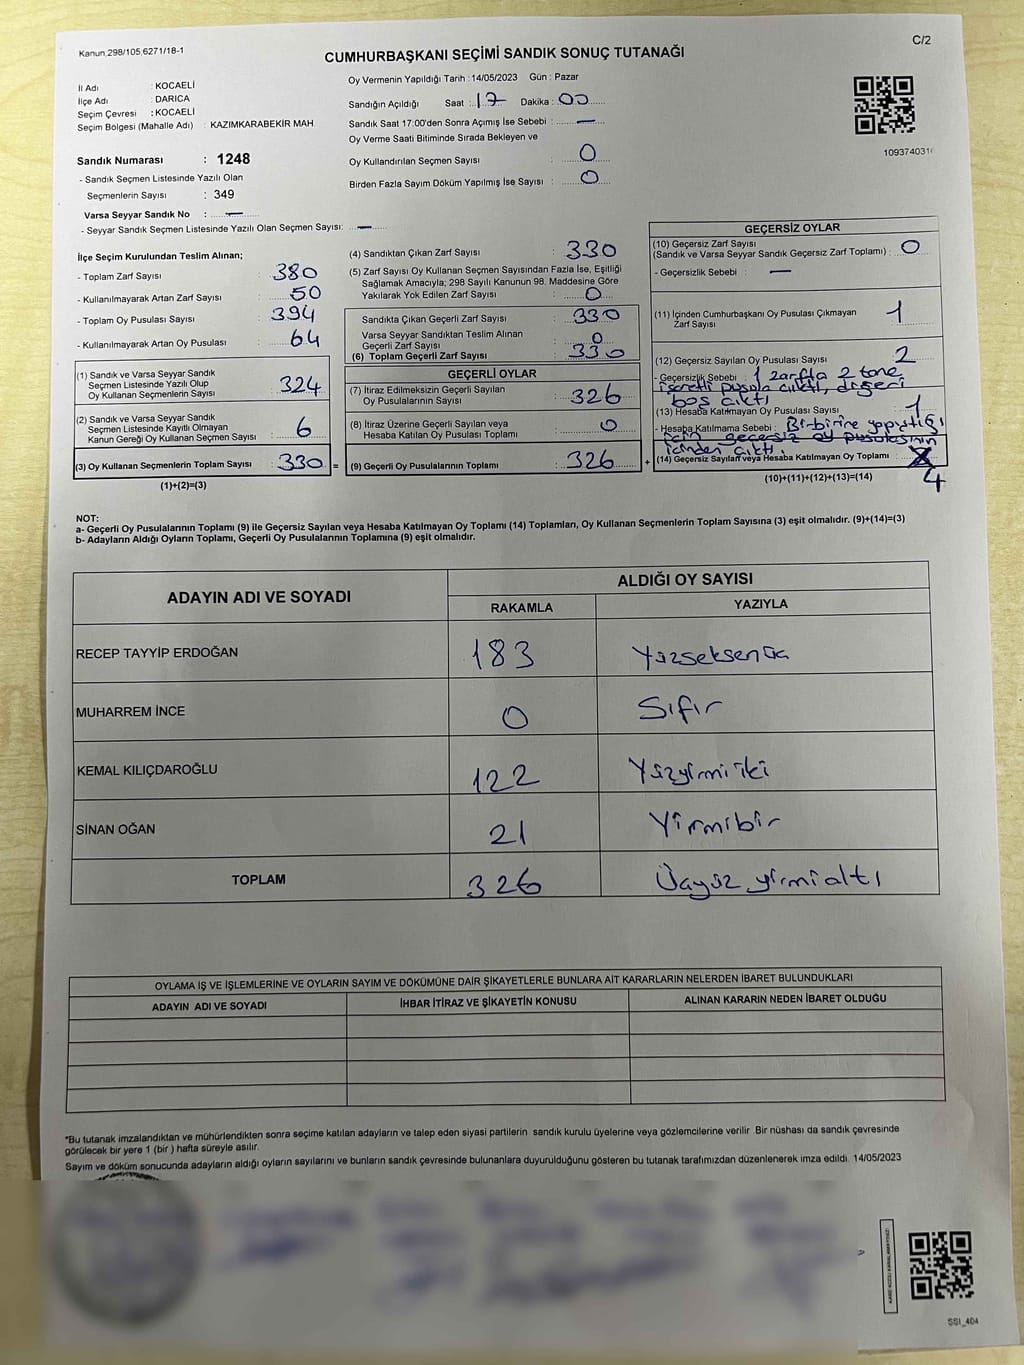 Kanun 298/105,6271/18-1
C/2
CUMHURBAŞKANI SEÇİMİ SANDIK SONUÇ TUTANAĞI
İl Adı : KOCAELİ
İlçe Adı : DARICA
Seçim Çevresi : KOCAELİ
Seçim Bölgesi (Mahalle Adı) : KAZIMKARABEKİR MAH.
Sandık Numarası : 1248
- Sandık Seçmen Listesinde Yazılı Olan
Seçmenlerin Sayısı : 349
Varsa Seyyar Sandık No : —
- Seyyar Sandık Seçmen Listesinde Yazılı Olan Seçmen Sayısı: —
Oy Vermenin Yapıldığı Tarih : 14/05/2023 Gün : Pazar
Sandığın Açıldığı Saat : 17 Dakika : 00
Sandık Saat 17:00'den Sonra Açımış İse Sebebi : —
Oy Verme Saati Bitiminde Sırada Bekleyen ve
Oy Kullandırılan Seçmen Sayısı : 0
Birden Fazla Sayım Döküm Yapılmış İse Sayısı : 0
109374031
İlçe Seçim Kurulundan Teslim Alınan;
- Toplam Zarf Sayısı : 380
- Kullanılmayarak Artan Zarf Sayısı : 50
- Toplam Oy Pusulası Sayısı : 394
- Kullanılmayarak Artan Oy Pusulası : 64
(1) Sandık ve Varsa Seyyar Sandık
Seçmen Listesinde Yazılı Olup
Oy Kullanan Seçmenlerin Sayısı : 324
(2) Sandık ve Varsa Seyyar Sandık
Seçmen Listesinde Kayıtlı Olmayan
Kanun Gereği Oy Kullanan Seçmen Sayısı : 6
(3) Oy Kullanan Seçmenlerin Toplam Sayısı : 330 =
(1)+(2)=(3)
(4) Sandıktan Çıkan Zarf Sayısı : 330
(5) Zarf Sayısı Oy Kullanan Seçmen Sayısından Fazla İse, Eşitliği
Sağlamak Amacıyla; 298 Sayılı Kanunun 98. Maddesine Göre
Yakılarak Yok Edilen Zarf Sayısı : 0
Sandıkta Çıkan Geçerli Zarf Sayısı : 330
Varsa Seyyar Sandıktan Teslim Alınan
Geçerli Zarf Sayısı : 0
(6) Toplam Geçerli Zarf Sayısı : 330
GEÇERLİ OYLAR
(7) İtiraz Edilmeksizin Geçerli Sayılan
Oy Pusulalarının Sayısı : 326
(8) İtiraz Üzerine Geçerli Sayılan veya
Hesaba Katılan Oy Pusulası Toplamı : 0
(9) Geçerli Oy Pusulalarının Toplamı : 326 +
GEÇERSİZ OYLAR
(10) Geçersiz Zarf Sayısı
(Sandık ve Varsa Seyyar Sandık Geçersiz Zarf Toplamı) : 0
- Geçersizlik Sebebi : —
(11) İçinden Cumhurbaşkanı Oy Pusulası Çıkmayan
Zarf Sayısı 1
(12) Geçersiz Sayılan Oy Pusulası Sayısı : 2
- Geçersizlik Sebebi : 1 zarfta 2 tane
işaretli pusula çıktı, diğeri
boş çıktı
(13) Hesaba Katılmayan Oy Pusulası Sayısı : 1
- Hesaba Katılmama Sebebi : Birbirine yapıştığı
için geçersiz oy pusulasının
içinden çıktı.
(14) Geçersiz Sayılan veya Hesaba Katılmayan Oy Toplamı : 4
(10)+(11)+(12)+(13)=(14)
NOT:
a- Geçerli Oy Pusulalarının Toplamı (9) ile Geçersiz Sayılan veya Hesaba Katılmayan Oy Toplamı (14) Toplamları, Oy Kullanan Seçmenlerin Toplam Sayısına (3) eşit olmalıdır. (9)+(14)=(3)
b- Adayların Aldığı Oyların Toplamı, Geçerli Oy Pusulalarının Toplamına (9) eşit olmalıdır.
ADAYIN ADI VE SOYADI
ALDIĞI OY SAYISI
RAKAMLA YAZIYLA
RECEP TAYYİP ERDOĞAN 183 Yüzseksenüç
MUHARREM İNCE 0 Sıfır
KEMAL KILIÇDAROĞLU 122 Yüzyirmiiki
SİNAN OĞAN 21 Yirmibir
TOPLAM 326 Üçyüz yirmialtı
OYLAMA İŞ VE İŞLEMLERİNE VE OYLARIN SAYIM VE DÖKÜMÜNE DAİR ŞİKAYETLERLE BUNLARA AİT KARARLARIN NELERDEN İBARET BULUNDUKLARI
ADAYIN ADI VE SOYADI İHBAR İTİRAZ VE ŞİKAYETİN KONUSU ALINAN KARARIN NEDEN İBARET OLDUĞU
*Bu tutanak imzalandıktan ve mühürlendikten sonra seçime katılan adayların ve talep eden siyasi partilerin sandık kurulu üyelerine veya gözlemcilerine verilir .Bir nüshası da sandık çevresinde
görülecek bir yere 1 (bir ) hafta süreyle asılır.
Sayım ve döküm sonucunda adayların aldığı oyların sayılarını ve bunların sandık çevresinde bulunanlara duyurulduğunu gösteren bu tutanak tarafımızdan düzenlenerek imza edildi. 14/05/2023
KARE KODU KARALAMAYINIZ!
SSI_404